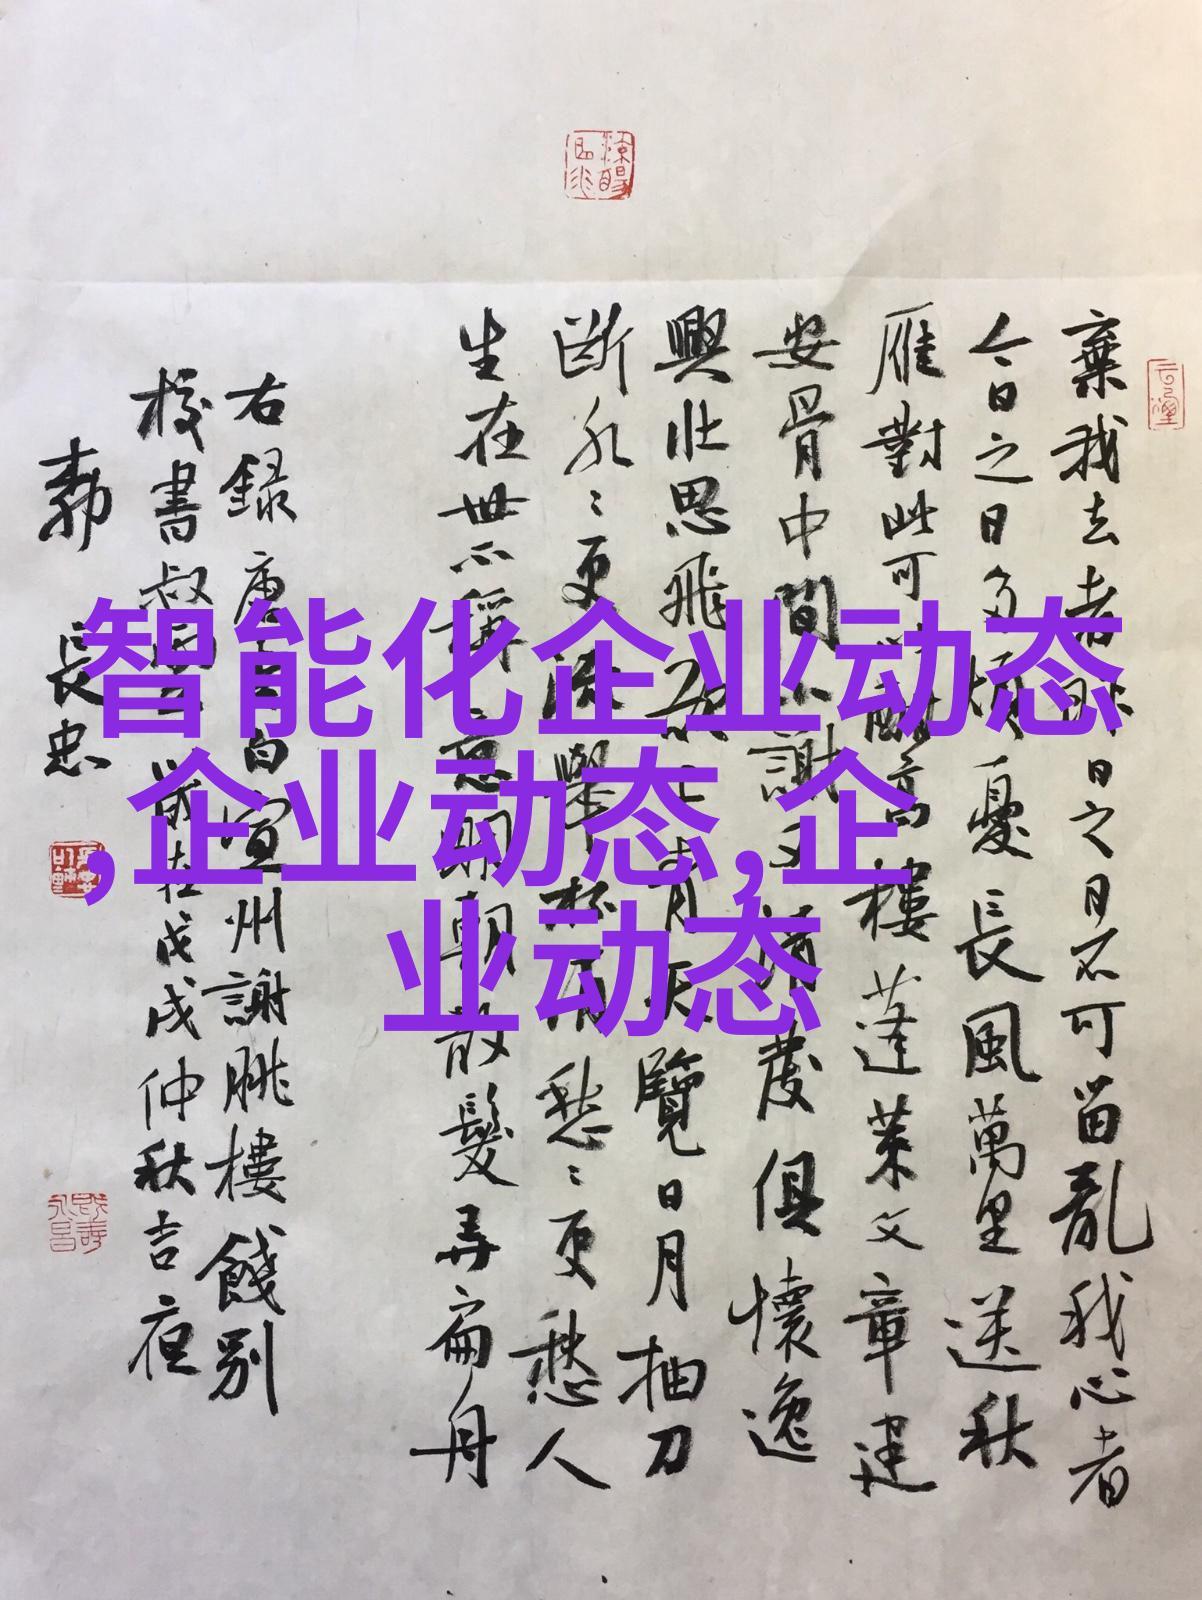 棄我去者昨日之日不可留亂我心者
今日之日多煩憂長風萬里送秋
雁對此可酣高樓蓬萊文章建
安骨中間小謝又清發俱懷逸
興壯思飛欲上青天覽日月抽刀
斷水〻更流舉杯消愁〻更愁人
生在世不稱意明朝散髮弄扁舟
右録唐李白宣州謝朓樓餞別
校書叔雲歲在戊戌仲秋吉夜
長忠
智能化企业动态
,企业动态,企
业动态